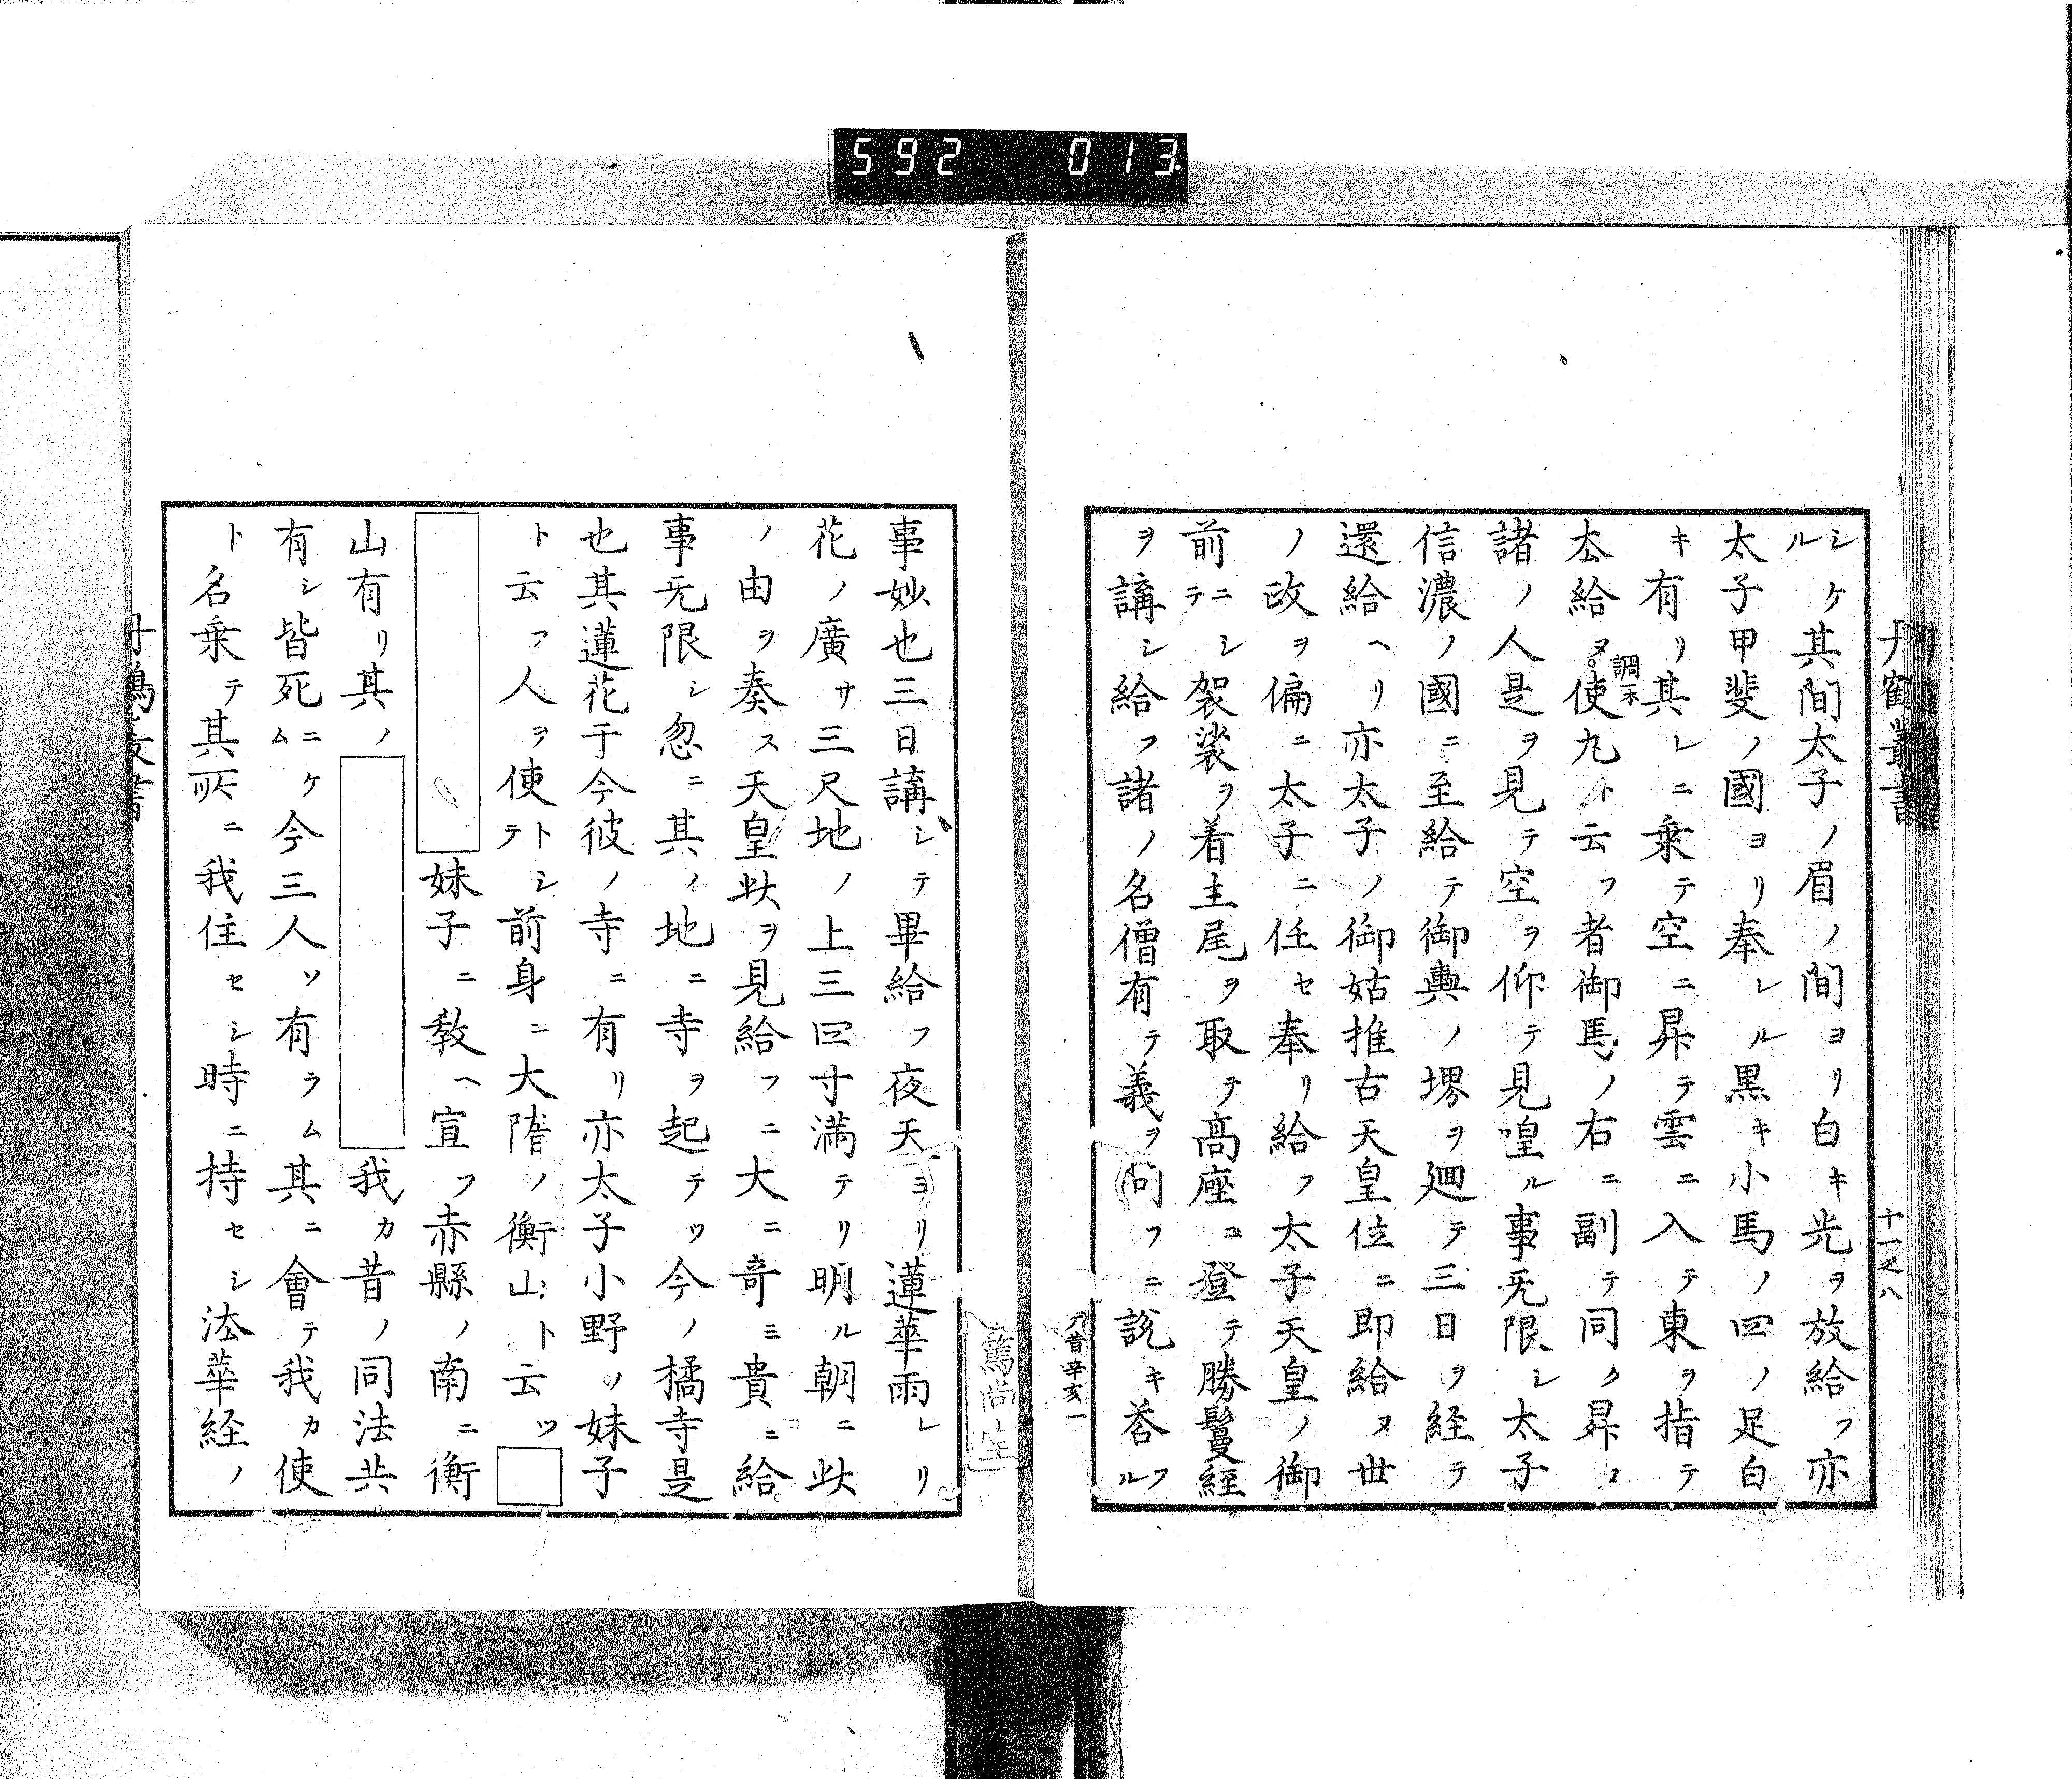 592 013
丹鶴叢書
十一之八
シケル其間太子ノ眉ノ間ヨリ白キ光ヲ放給フ亦
太子甲斐ノ國ヨリ奉レル黒キ小馬ノ四ノ足白
キ有リ其レニ乗テ空ニ昇テ雲ニ入テ東ヲ指テ
去給ヌ使丸ト云フ者御馬ノ右ニ副テ同ク昇ヌ
調末
諸ノ人是ヲ見テ空ヲ仰テ見喤ル事无限シ太子
信濃ノ國ニ至給テ御輿ノ堺ヲ廻テ三日ヲ経テ
還給ヘリ亦太子ノ御姑推古天皇位ニ即給ヌ世
ノ政ヲ偏ニ太子ニ任セ奉リ給フ太子天皇ノ御
前ニシテ袈裟ヲ着主尾ヲ取テ高座ニ登テ勝鬘経
ヲ講シ給フ諸ノ名僧有テ義ヲ問フニ説キ荅フル
昔辛亥一
事妙也三日講シテ畢給フ夜天ヨリ蓮華雨レリ
花ノ廣サ三尺地ノ上三四寸満テリ明ル朝ニ此
ノ由ヲ奏ス天皇此ヲ見給フニ大ニ奇ミ貴ミ給
事无限シ忽ニ其ノ地ニ寺ヲ起テツ今ノ橘寺是
也其蓮花于今彼ノ寺ニ有リ亦太子小野ノ妹子
ト云フ人ヲ使トシテ前身ニ大隋ノ衡山ト云ツ
妹子ニ教ヘ宣フ赤縣ノ南ニ衡
山有リ其ノ 我カ昔ノ同法共
有シ皆死ニケム今三人ソ有ラム其ニ會テ我カ使
ト名乗テ其所ニ我住セシ時ニ持セシ法華経ノ